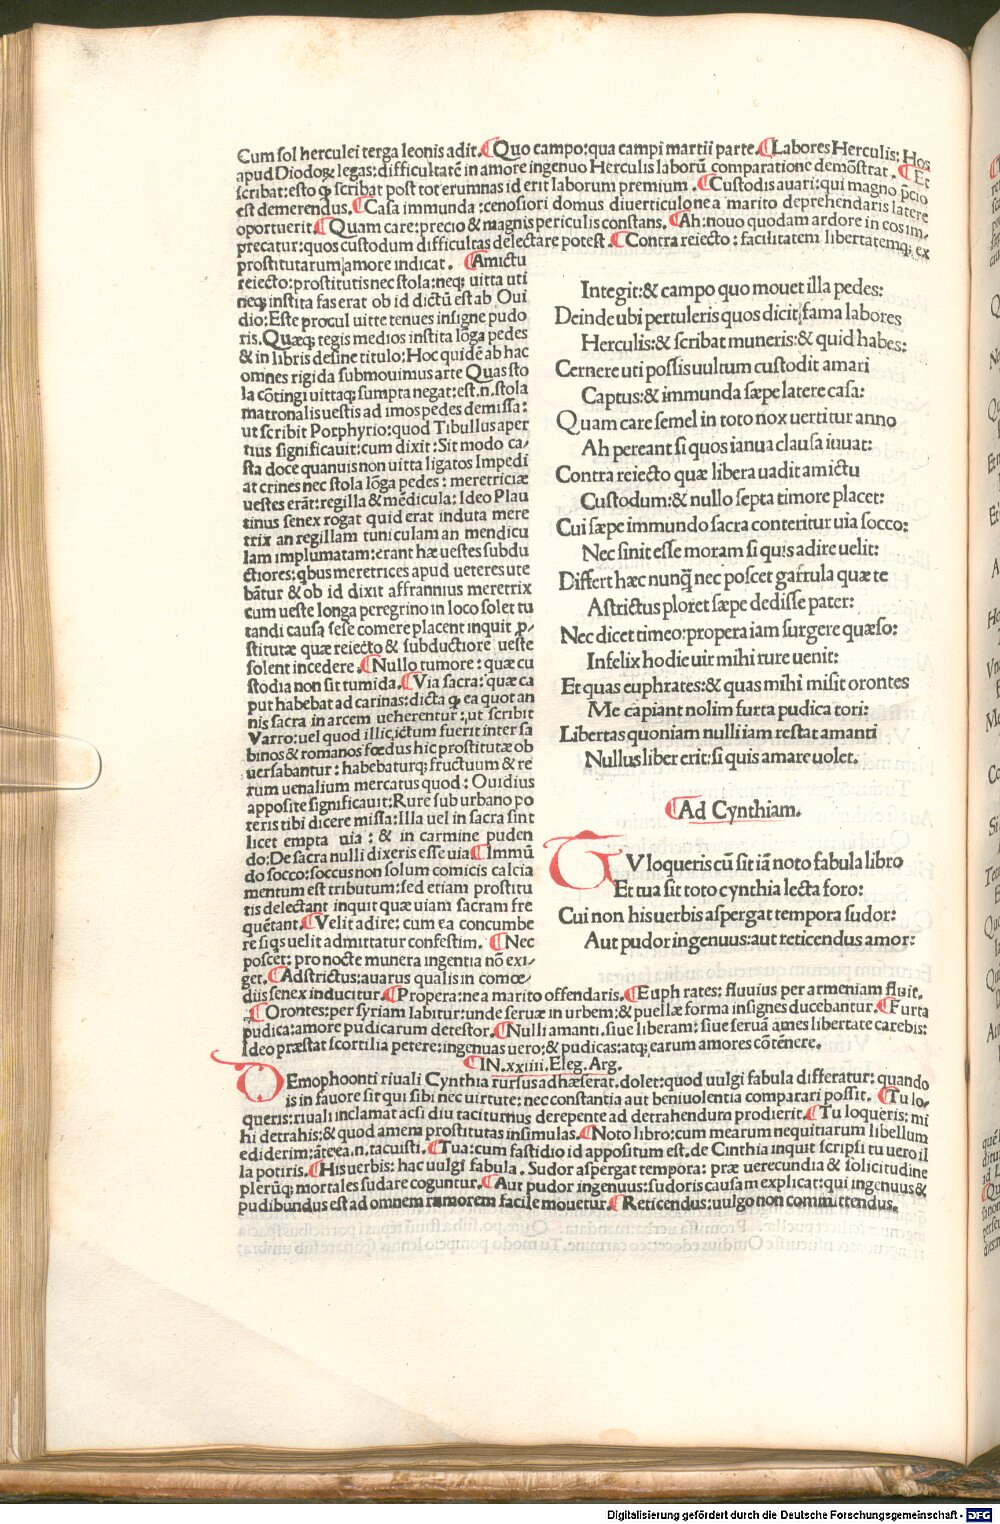 Cum sol herculei terga leonis adit. ¶Quo campo: qua campi martii parte. ¶Labores Herculis: Hos
apud Diodoꝝ legas: difficultatē in amore ingenuo Herculis laborū comparatione demōstrat. ¶Et
scribat: esto ꝙ scribat post tot erumnas id erit laborum premium. ¶Custodis auari: qui magno p̄cio
est demerendus. ¶Casa immunda: censori domus diuerticulo ne a marito deprehendaris latere
oportuerit. ¶Quam care: precio & magnis periculis constans. ¶Ah: nouo quodam ardore in eos im⸗
precatur: quos custodum difficultas delectare potest. ¶Contra reiecto: facilitatem libertatemqꝫ ex
prostitutarum amore indicat. ¶Amictu
reiecto: prostitutis nec stola: neqꝫ uitta uti
neqꝫ instita fas erat ob id dictū est ab Oui
dio: Este procul uitte tenues insigne pudo
ris. Quæqꝫ tegis medios instita lōga pedes
& in libris de sine titulo: Hoc quidē ab hac
omnes rigida submouimus arte Quas sto
la cōtingi uittaqꝫ sumpta negat: est .n. stola
matronalis uestis ad imos pedes demissa:
ut scribit Porphyrio: quod Tibullus aper
tius significauit: cum dixit: Sit modo ca⸗
sta doce quanuis non uitta ligatos Impedi
at crines nec stola lōga pedes: meretriciæ
uestes erāt: regilla & mēdicula: Ideo Plau
tinus senex rogat quid erat induta mere
trix an regillam tuniculam an mendicu
lam implumatam: erant hæ uestes subdu
ctiores: qbus meretrices apud ueteres ute
bātur & ob id dixit affrannius meretrix
cum ueste longa peregrino in loco solet tu
tandi causa sese comere placent inquit p⸗
stitutæ quæ reiecto & subductiore ueste
solent incedere. ¶Nullo tumore: quæ cu
stodia non sit tumida. ¶Via sacra: quæ ca
put habebat ad carinas: dicta ꝙ ea quot an
nis sacra in arcem ueherentur: ut scribit
Varro: uel quod illic ictum fuerit inter sa
binos & romanos fœdus hic prostitutæ ob
uersabantur: habebaturqꝫ fructuum & re
rum uenalium mercatus quod: Ouidius
apposite significauit: Rure suburbano po
teris tibi dicere missa: Illa uel in sacra sint
licet empta uia: & in carmine puden
do: De sacra nulli dixeris esse uia ¶Immū
do socco: soccus non solum comicis calcia
mentum est tributum: sed etiam prostitu
tis delectant inquit quæ uiam sacram fre
quētant. ¶Velit adire: cum ea concumbe
re siqs uelit admittatur confestim. ¶Nec
poscet: pro nocte munera ingentia nō exi⸗
get. ¶Adstrictus: auarus qualis in comœ⸗
diis senex inducitur. ¶Propera: ne a marito offendaris. ¶Euphrates: fluuius per armeniam fluit.
¶Orontes: per syriam labitur: unde seruæ in urbem: & puellæ forma insignes ducebantur. ¶Furta
pudica: amore pudicarum detestor. ¶Nulli amanti, siue liberam: siue seruā ames libertate carebis:
Ideo præstat scortilia petere: ingenuas uero: & pudicas: atqꝫ earum amores cōtēnere.
Integit: & campo quo mouet illa pedes:
Deinde ubi pertuleris quos dicit fama labores
Herculis: & scribat muneris: & quid habes:
Cernere uti possis uultum custodit amari
Captus: & immunda sæpe latere casa:
Quam care semel in toto nox uertitur anno
Ah pereant si quos ianua clausa iuuat:
Contra reiecto quæ libera uadit amictu
Custodum: & nullo septa timore placet:
Cui sæpe immundo sacra conteritur uia socco:
Nec sinit esse moram si quis adire uelit:
Differt hæc nunq̄ nec poscet garrula quæ te
Astrictus ploret sæpe dedisse pater:
Nec dicet timeo: propera iam surgere quæso:
Infelix hodie uir mihi rure uenit:
Et quas euphrates: & quas mihi misit orontes
Me capiant nolim furta pudica tori:
Libertas quoniam nulli iam restat amanti
Nullus liber erit: si quis amare uolet.
¶Ad Cynthiam.
TV loqueris cū sit iā noto fabula libro
Et tua sit toto cynthia lecta foro:
Cui non his uerbis aspergat tempora sudor:
Aut pudor ingenuus: aut reticendus amor:
¶IN .xxiiii. Eleg. Arg.
DEmophoonti riuali Cynthia rursus adhæserat. dolet: quod uulgi fabula differatur: quando
is in fauore sit qui sibi nec uirtute: nec constantia aut beniuolentia comparari possit. ¶Tu lo⸗
queris: riuali inclamat acsi diu taciturnus derepente ad detrahendum prodierit. ¶Tu loqueris: mi
hi detrahis: & quod amem prostitutas insimulas. ¶Noto libro: cum mearum nequitiarum libellum
ediderim: āte ea .n. tacuisti. ¶Tua: cum fastidio id appositum est. de Cinthia inquit scripsi tu uero il
la potiris. ¶His uerbis: hac uulgi fabula. Sudor aspergat tempora: præ uerecundia & solicitudine
plerūqꝫ mortales sudare coguntur. ¶Aut pudor ingenuus: sudoris causam explicat: qui ingenuus &
pudibundus est ad omnem rumorem facile mouetur. ¶Reticendus: uulgo non committendus.
Digitalisierung gefördert durch die Deutsche Forschungsgemeinschaft - DFG